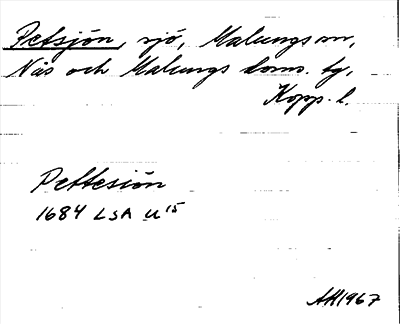 Petsjön, sjö, Malungs sn,
Nås och Malungs doms. tg,
Kopp. l.
Pettesiön
1684 LSA U15
AH1967